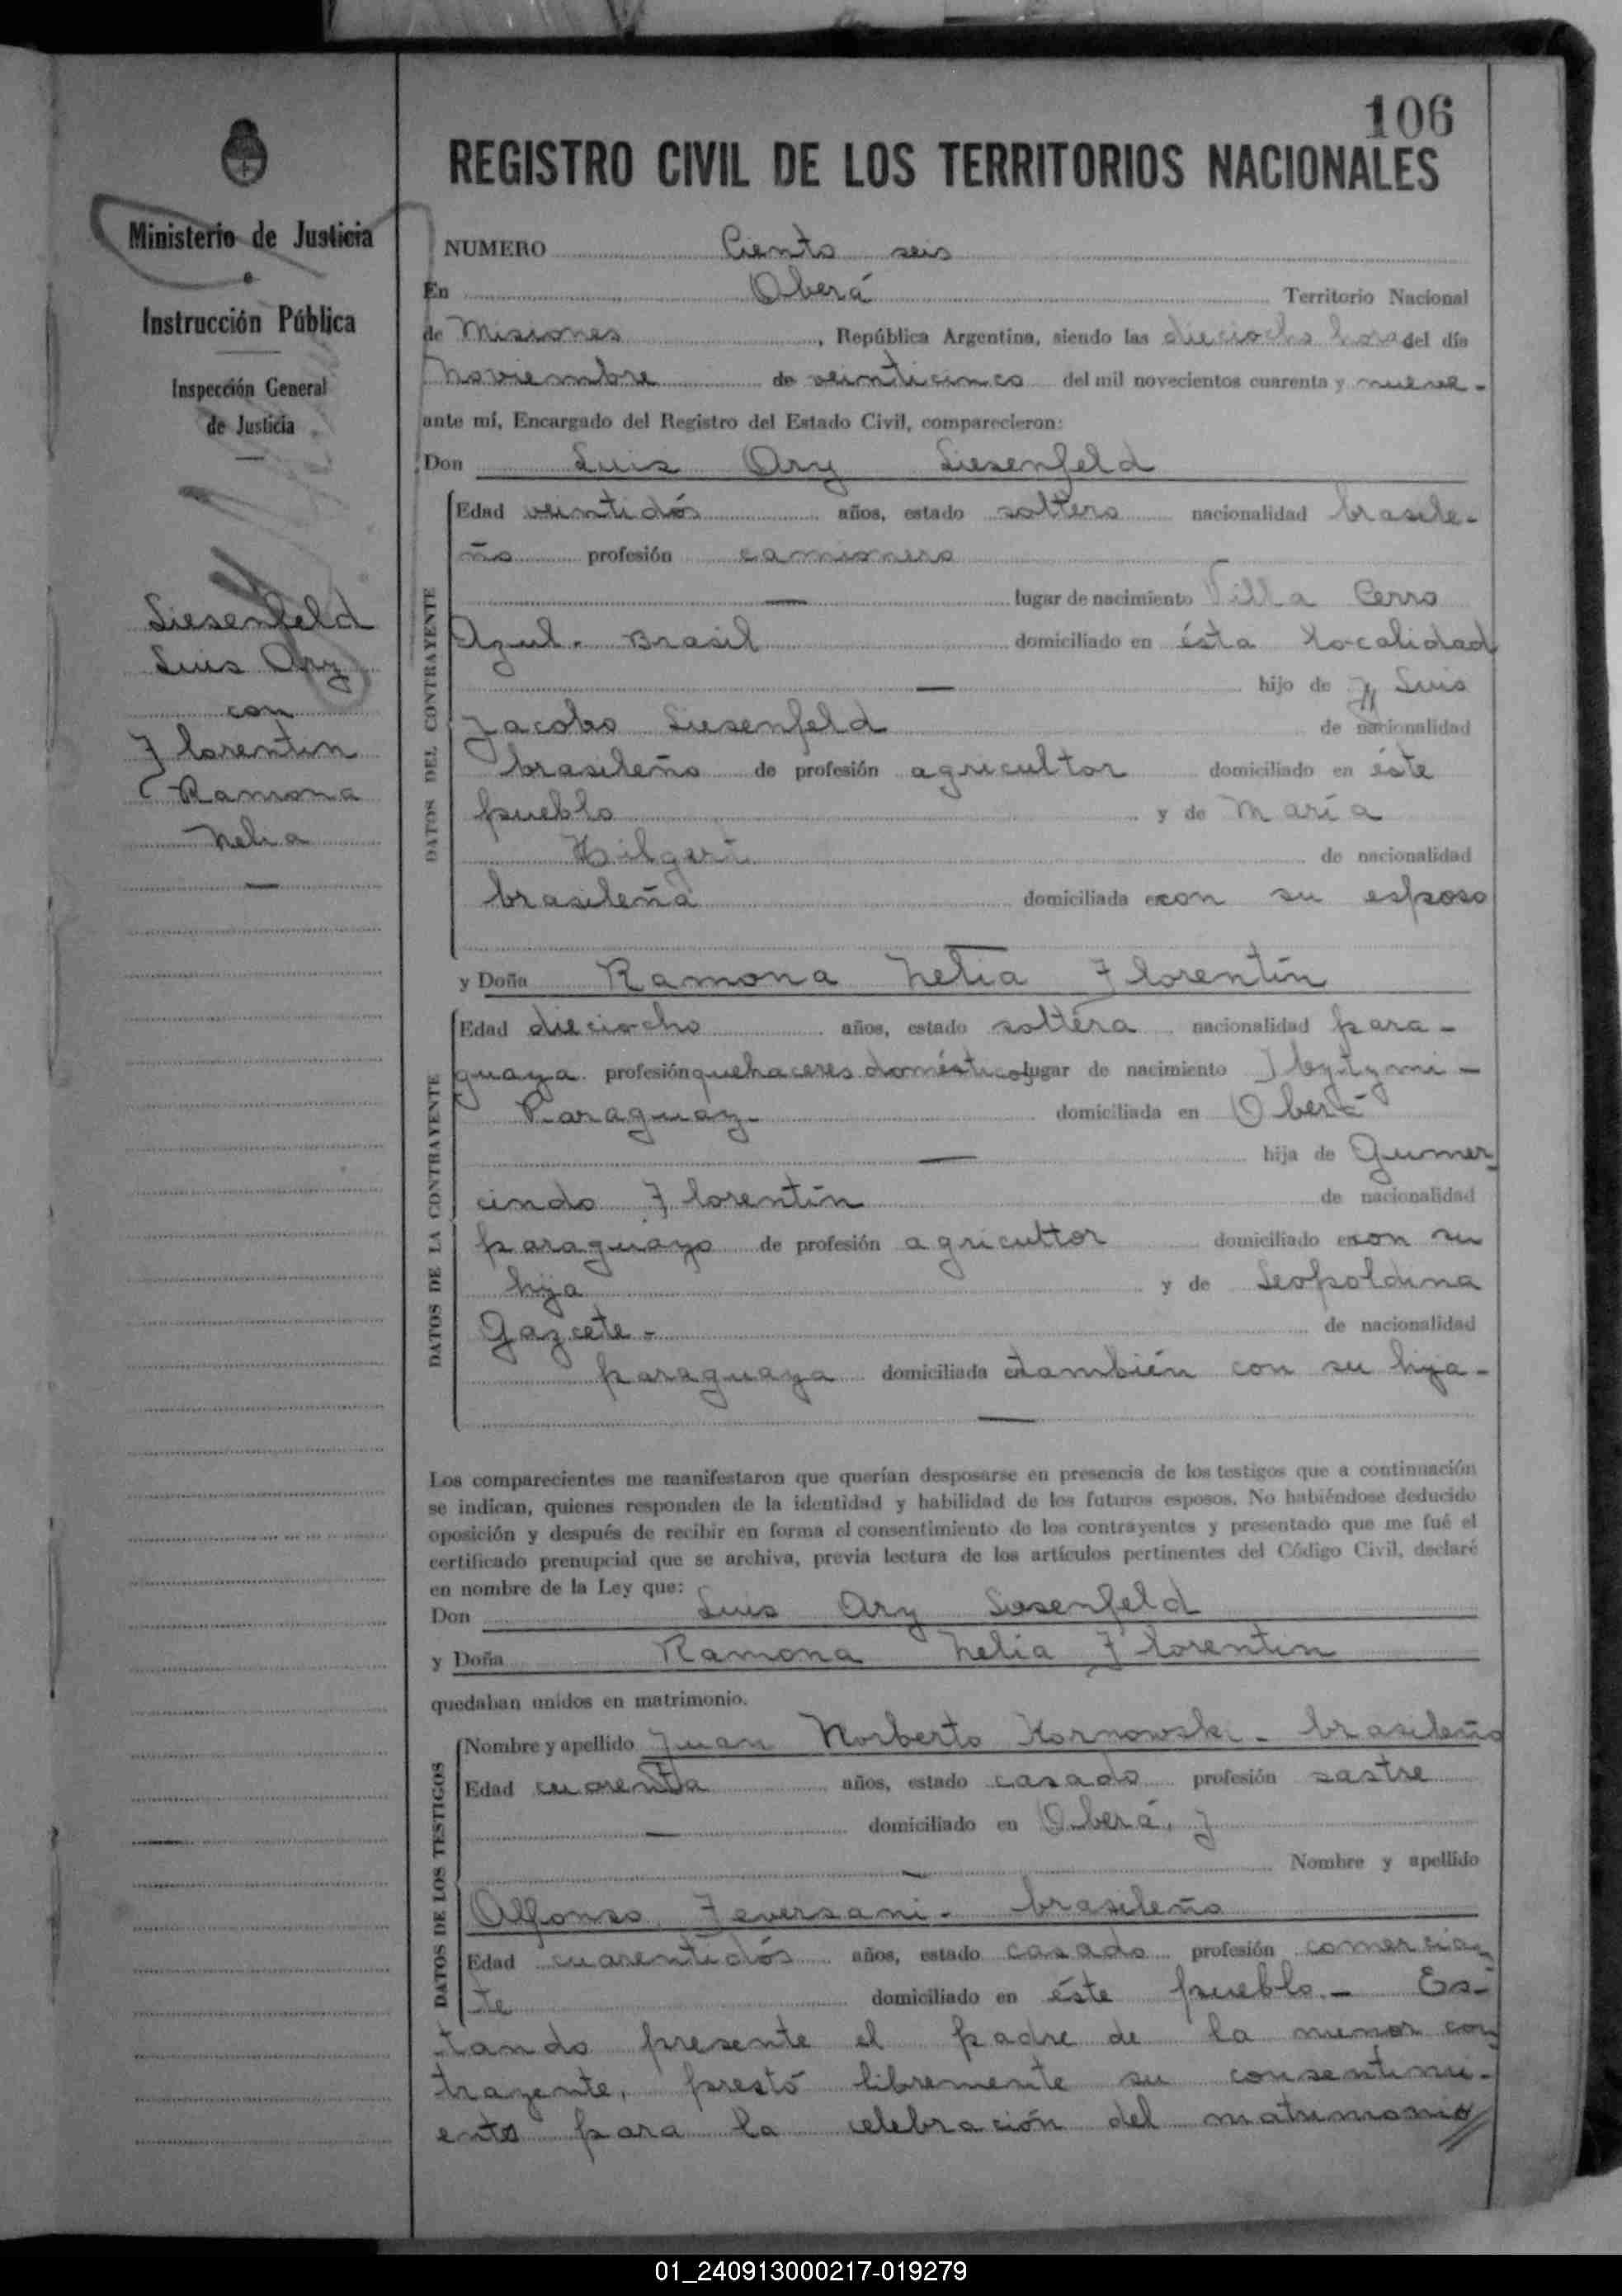 106
REGISTRO CIVIL DE LOS TERRITORIOS NACIONALES
Ministerio de Justicia
e
Instrucción Pública
Inspección General
de Justicia
Liesenfeld
Luis Ary
con
Florentin
Ramona
Nelia
NUMERO Ciento seis
En Oberá Territorio Nacional
de Misiones, República Argentina, siendo las dieciocho horas del día
Noviembre de veinticinco del mil novecientos cuarenta y nueve-
ante mí, Encargado del Registro del Estado Civil, comparecieron:
Don Luis Ary Liesenfeld
DATOS DEL CONTRAYENTE
Edad veintidós años, estado soltero nacionalidad brasile-
ño profesión camionero
lugar de nacimiento Villa Cerro
Azul. Brasil domiciliado en ésta localidad
hijo de Luis
Jacobo Liesenfeld de nacionalidad
brasileño de profesión agricultor domiciliado en éste
pueblo y de María
Hilgert de nacionalidad
brasileña domiciliada en con su esposo
y Doña Ramona Nelia Florentín
DATOS DE LA CONTRAYENTE
Edad dieciocho años, estado soltera nacionalidad para-
guaya profesión quehaceres domésticos lugar de nacimiento Ibytymi-
Paraguay- domiciliada en Oberá
hija de Gumer
cindo Florentín de nacionalidad
paraguayo de profesión agricultor domiciliado en con su
hija y de Leopoldina
Gazcete- de nacionalidad
paraguaya domiciliada en también con su hija-
Los comparecientes me manifestaron que querían desposarse en presencia de los testigos que a continuación
se indican, quienes responden de la identidad y habilidad de los futuros esposos. No habiéndose deducido
oposición y después de recibir en forma el consentimiento de los contrayentes y presentado que me fué el
certificado prenupcial que se archiva, previa lectura de los artículos pertinentes del Código Civil, declaré
en nombre de la Ley que:
Don Luis Ary Liesenfeld
y Doña Ramona Nelia Florentin
quedaban unidos en matrimonio.
DATOS DE LOS TESTIGOS
Nombre y apellido Juan Norberto Kornowski- brasileño
Edad cuarenta años, estado casado profesión sastre
domiciliado en Oberá, y
Nombre y apellido
Alfonso Feversani- brasileño
Edad cuarentidós años, estado casado profesión comercian
te domiciliado en éste pueblo.- Es-
tando presente el padre de la menor con
trayente, prestó libremente su consentimi-
ento para la celebración del matrimonio//
01_240913000217-019279